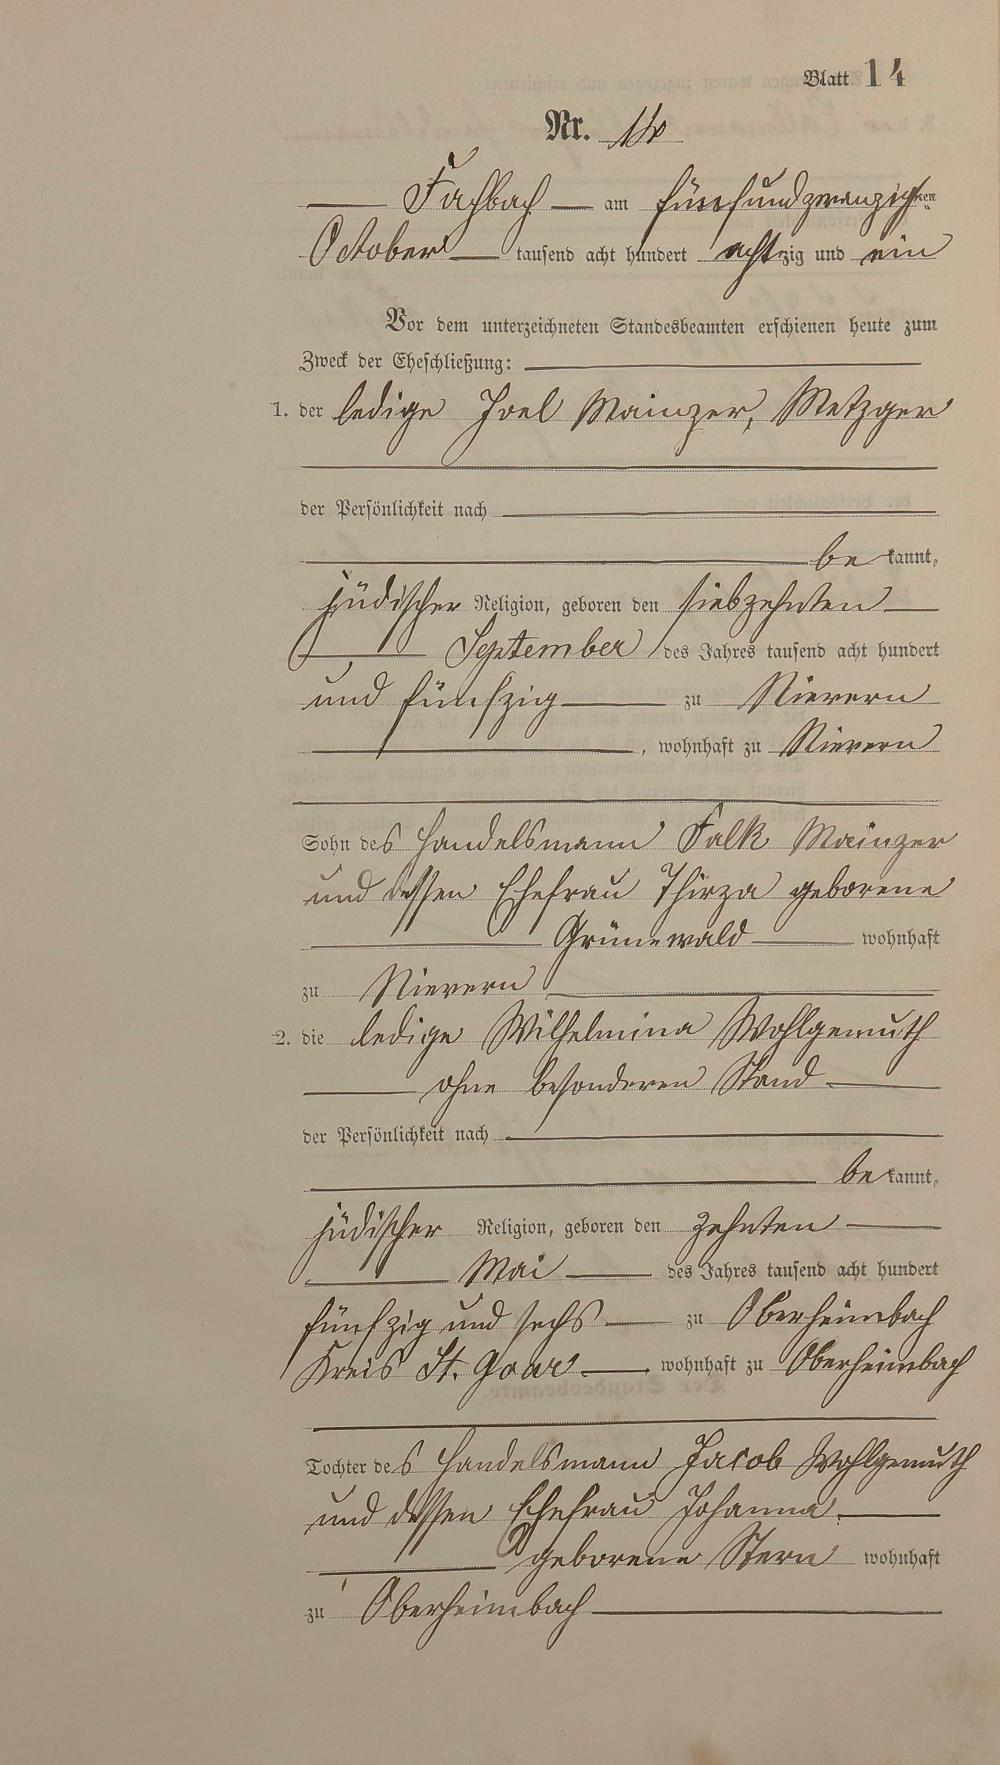 Blatt 14
Nr. 14
Fachbach am fünfundzwanzigsten
October tausend acht hundert achtzig und ein
Vor dem unterzeichneten Standesbeamten erschienen heute zum
Zweck der Eheschließung:
1. der ledige Joel Mainzer, Metzger
der Persönlichkeit nach
bekannt,
jüdischer Religion, geboren den siebzehnten
September des Jahres tausend acht hundert
und fünfzig zu Nievern
, wohnhaft zu Nievern
Sohn des Handelsmann Falk Mainzer
und dessen Ehefrau Thirza geborene
Grünewald wohnhaft
zu Nievern
2. die ledige Wilhelmina Wohlgemuth
ohne besonderen Stand
der Persönlichkeit nach
bekannt,
jüdischer Religion, geboren den zehnten
Mai des Jahres tausend acht hundert
fünfzig und sechs zu Oberheimbach
Kreis St. Goar, wohnhaft zu Oberheimbach
Tochter des Handelsmann Jacob Wohlgemuth
und dessen Ehefrau Johanna
geborene Stern wohnhaft
zu Oberheimbach